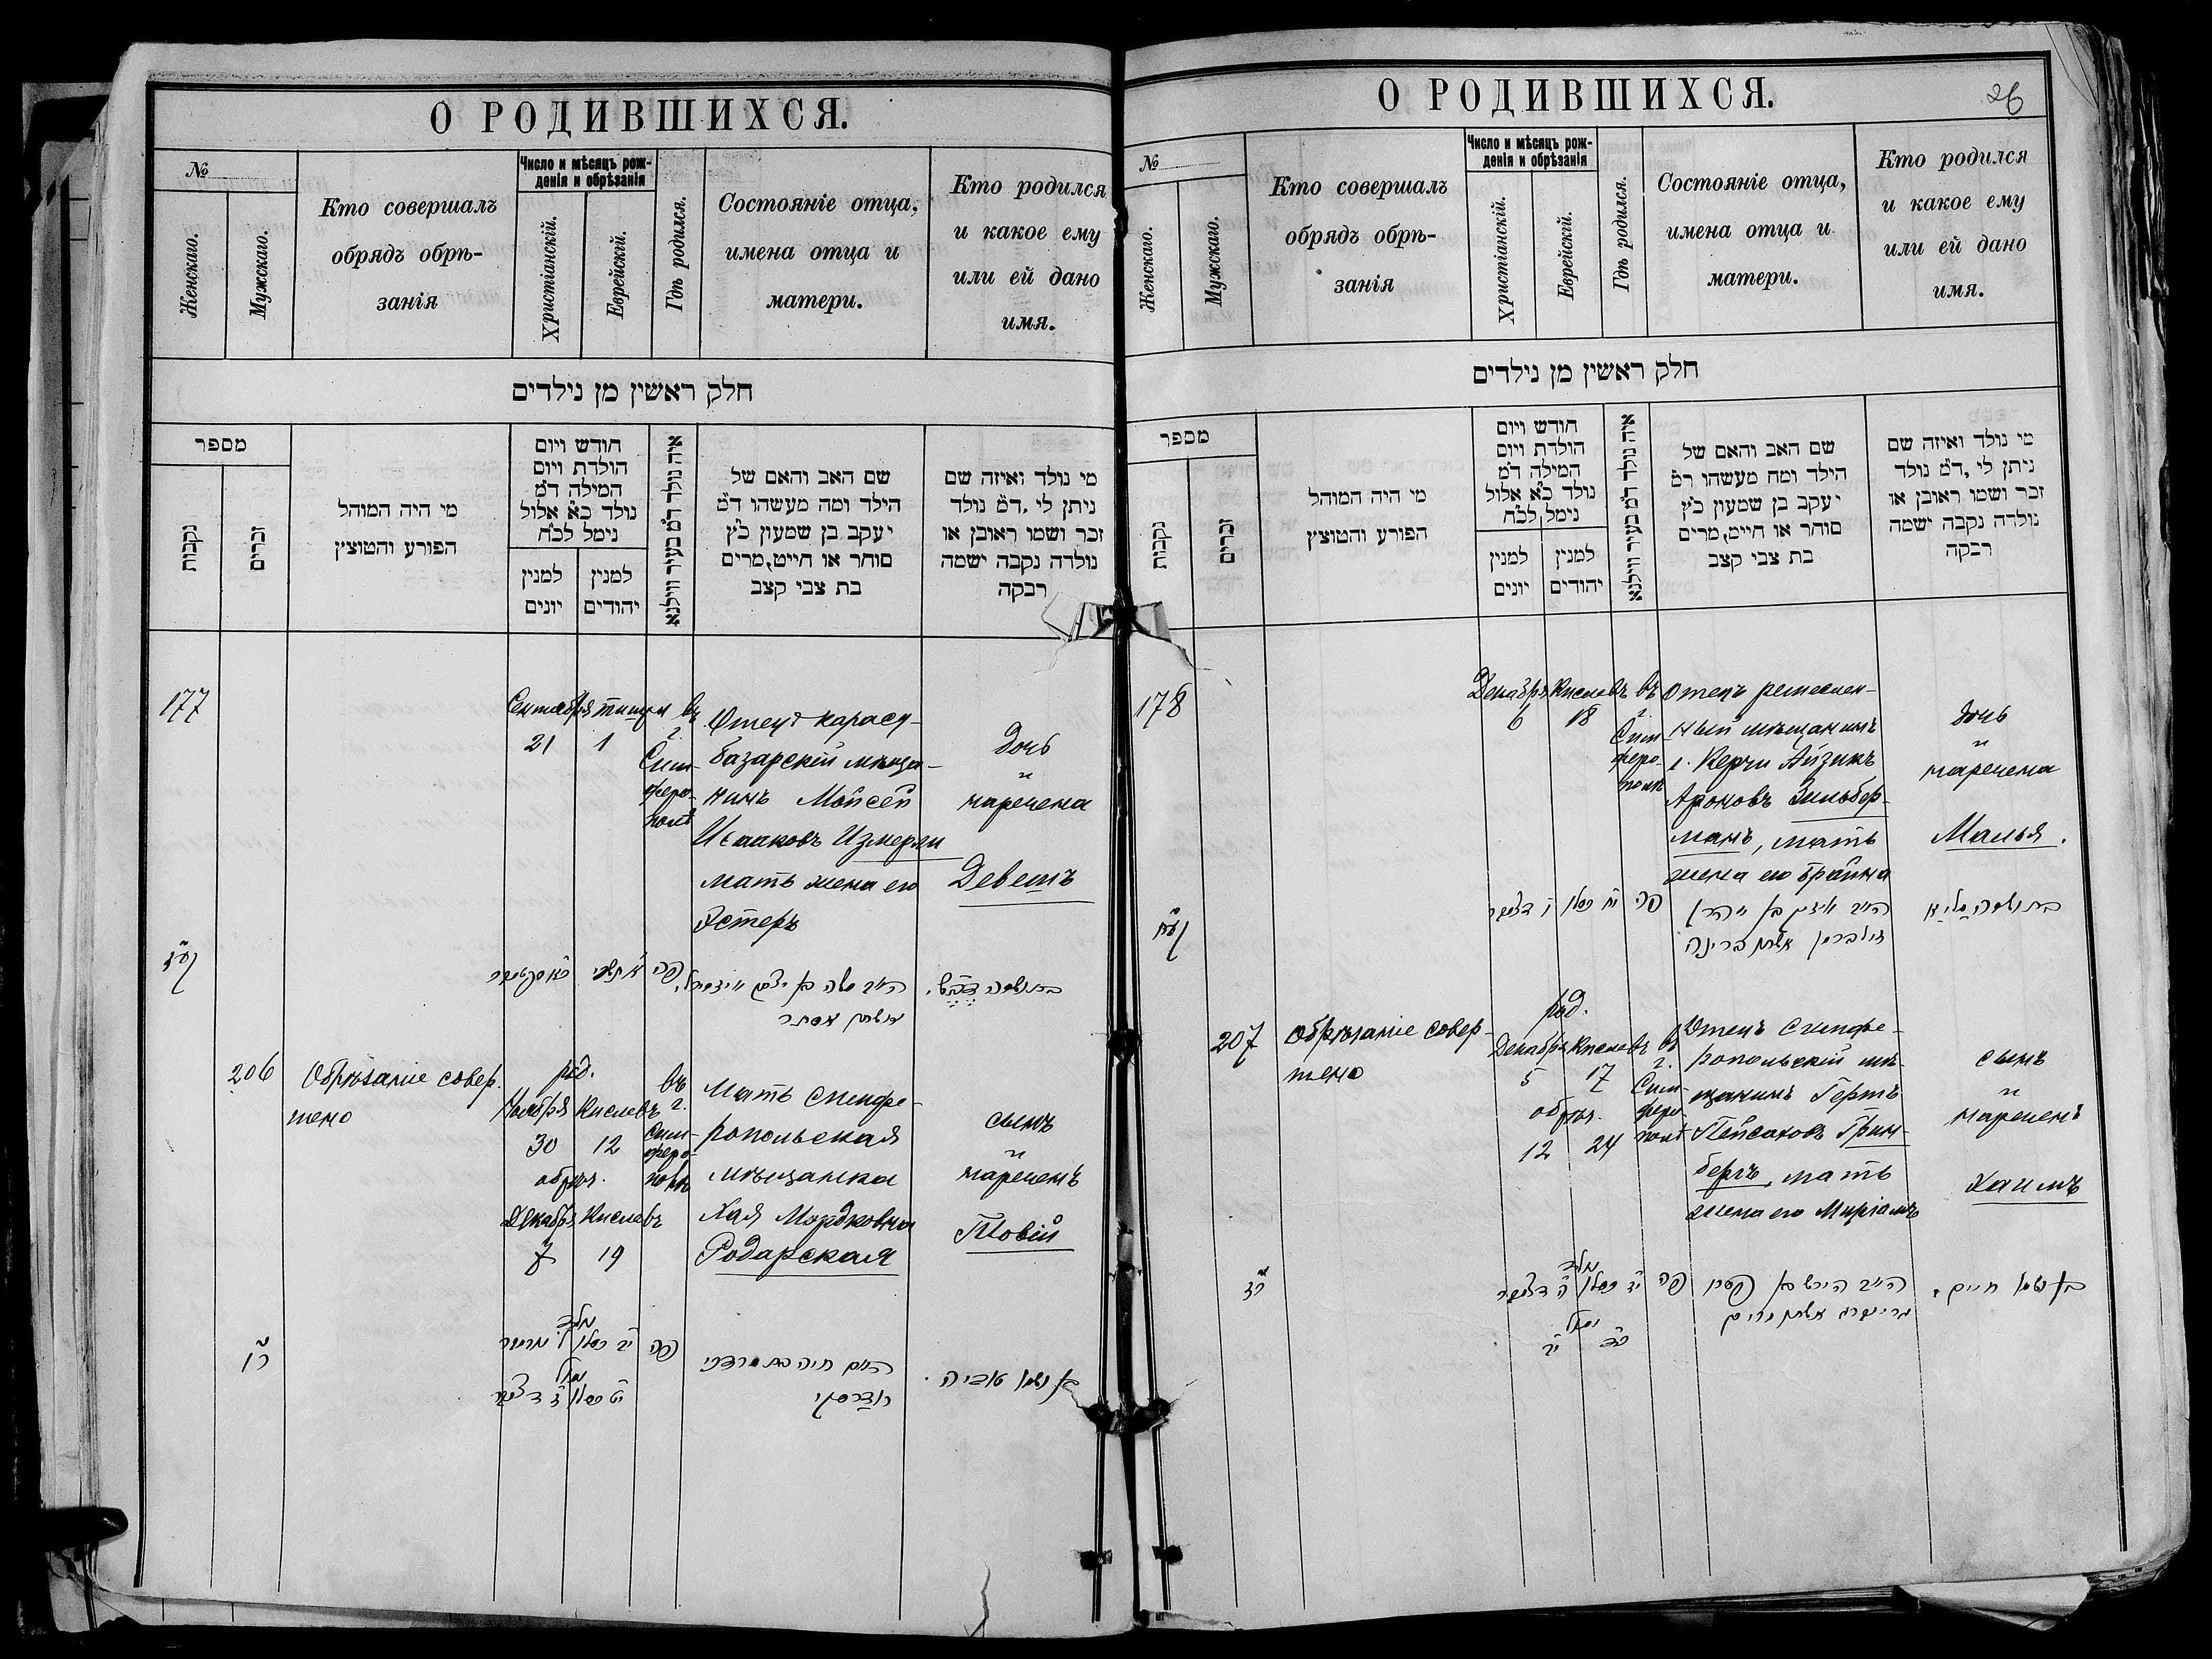 О РОДИВШИХСЯ.
№
Женскаго.
Мужскаго.
Кто совершалъ
обрядъ обрѣ-
занія
Число и мѣсяцъ рож-
денія и обрѣзанія
Христіанскій.
Еврейскій.
Гдѣ родился.
Состояніе отца,
имена отца и
матери.
Кто родился
и какое ему
или ей дано
имя.
חלק ראשין מן נילדים
מספר
נקבות
זכרים
מי היה המוהל
הפורע והטוצץ
חודש ויום
הולדת ויום
המילה ד״מ
נולד כ״א אלול
נימל לכ״ח
למנין
יונים
למנין
יהודים
איה נולד ד״מ בעיר ווילנא
שם האב והאם של
הילד ומה מעשהו ד״מ
יעקב בן שמעון כ״ץ
סוחר או חייט,מרים
בת צבי קצב
מי נולד ואיזה שם
ניתן לי ,ד״מ נולד
זכר ושמו ראובן או
נולדה נקבה ישמה
רבקה
177
Сентября тишри
21 1
въ
г.
Сим-
феро-
полѣ
Отецъ Карасу-
базарскій мѣща-
нинъ Мойсей
Исааковъ Измерли
мать жена его
Эстеръ
Дочь
и
наречена
Девешъ
פה
206
Обрѣзаніе совер-
шено
род.
Ноября Кислевъ
30 12
обрѣз.
Декабря Кислевъ
7 19
въ
г.
Сим-
феро-
полѣ
Мать Симфе-
ропольская
мѣщанка
Хая Мордковна
Родарская
сынъ
и
нареченъ
Товій
פה
О РОДИВШИХСЯ.
26
№
Женскаго.
Мужскаго.
Кто совершалъ
обрядъ обрѣ-
занія
Число и мѣсяцъ рож-
денія и обрѣзанія
Христіанскій.
Еврейскій.
Гдѣ родился.
Состояніе отца,
имена отца и
матери.
Кто родился
и какое ему
или ей дано
имя.
חלק ראשין מן נילדים
מספר
נקבות
זכרים
מי היה המוהל
הפורע והטוצץ
חודש ויום
הולדת ויום
המילה ד״מ
נולד כ״א אלול
נימל לכ״ח
למנין
יונים
למנין
יהודים
איה נולד ד״מ בעיר ווילנא
שם האב והאם של
הילד ומה מעשהו ד״מ
יעקב בן שמעון כ״ץ
סוחר או חייט,מרים
בת צבי קצב
מי נולד ואיזה שם
ניתן לי ,ד״מ נולד
זכר ושמו ראובן או
נולדה נקבה ישמה
רבקה
178
Декабря Кислевъ
6 18
въ
г.
Сим-
феро-
полѣ
Отецъ ремеслен-
ный мѣщанинъ
г. Керчи Айзикъ
Ароновъ Зильбер-
манъ, мать
жена его Брайна
дочь
и
наречена
Малья.
פה
207
Обрѣзаніе совер-
шено
род.
Декабря Кислевъ
5 17
обрѣз.
12 24
въ
г.
Сим-
феро-
полѣ
Отецъ Симфе-
ропольскій мѣ-
щанинъ Гершъ
Пейсаховъ Грин-
бергъ, мать
жена его Миріамъ
сынъ
и
нареченъ
Хаимъ
פה
בן ושמו חיים.